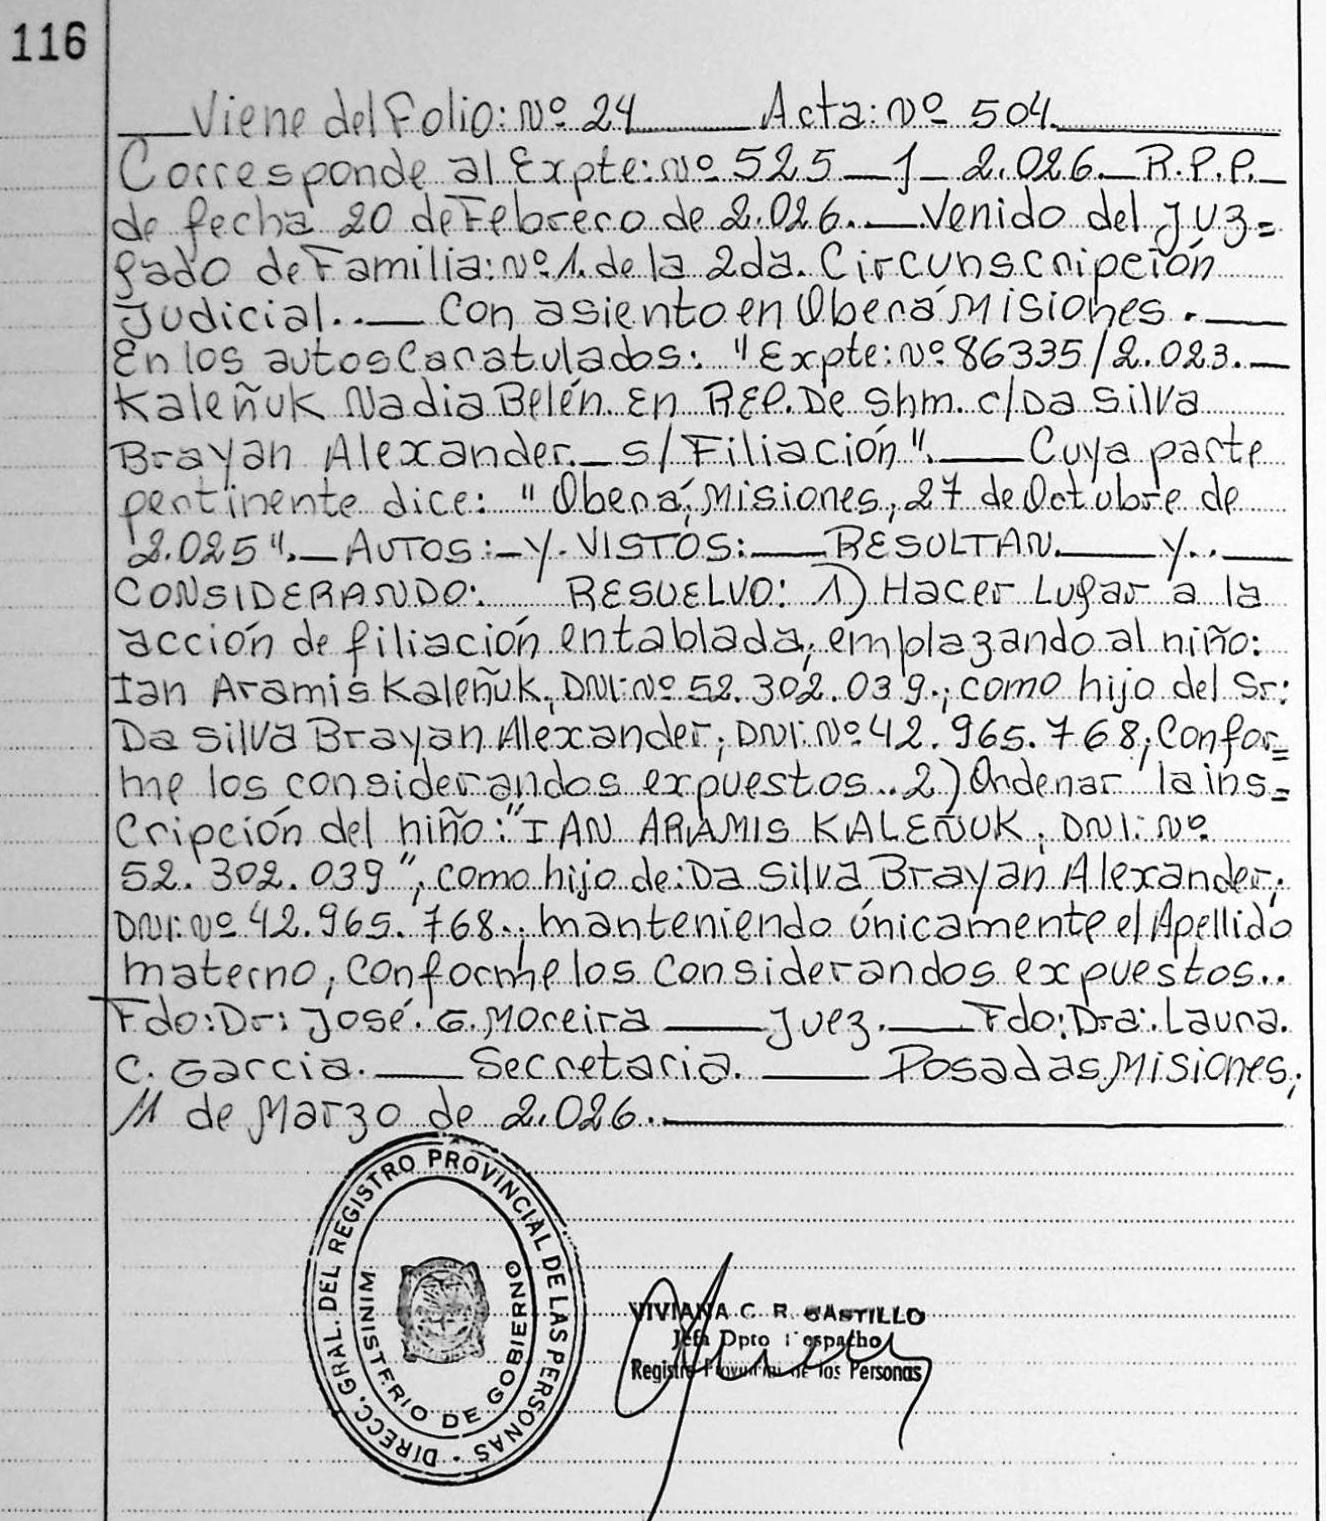 116
Viene del Folio: Nº 24 Acta: Nº 504.
Corresponde al Expte: Nº 525 – J – 2.026. R.P.P. –
de fecha 20 de Febrero de 2.026. – Venido del Juz=
gado de Familia: Nº 1. de la 2da. Circunscripción
Judicial.. – Con asiento en Oberá Misiones. –
En los autos Caratulados: "Expte: Nº 86335/2.023. –
Kaleñuk Nadia Belén. En REP. De Shm. c/ Da Silva
Brayan Alexander. – S/ Filiación". – Cuya parte
pertinente dice: "Oberá, Misiones, 27 de Octubre de
2.025". – AUTOS: – Y. VISTOS: – RESULTAN. – Y.. –
CONSIDERANDO: RESUELVO: 1) Hacer Lugar a la
acción de filiación entablada, emplazando al niño:
Ian Aramis Kaleñuk, DNI: Nº 52.302.039., como hijo del Sr:
Da Silva Brayan Alexander, DNI: Nº 42.965.768, Confor=
me los considerandos expuestos.. 2) Ordenar la ins=
cripción del niño: "IAN ARAMIS KALEÑUK, DNI: Nº
52.302.039", como hijo de: Da Silva Brayan Alexander,
DNI: Nº 42.965.768., manteniendo únicamente el Apellido
materno, conforme los Considerandos expuestos..
Fdo: Dr: José. G. Moreira – Juez. – Fdo: Dra: Laura.
C. Garcia. – Secretaria. – Posadas Misiones,
11 de Marzo de 2.026..
DIRECC. GRAL. DEL REGISTRO PROVINCIAL DE LAS PERSONAS
MINISTERIO DE GOBIERNO
VIVIANA C. R. CASTILLO
Jefa Dpto Despacho
Registro Provincial de las Personas